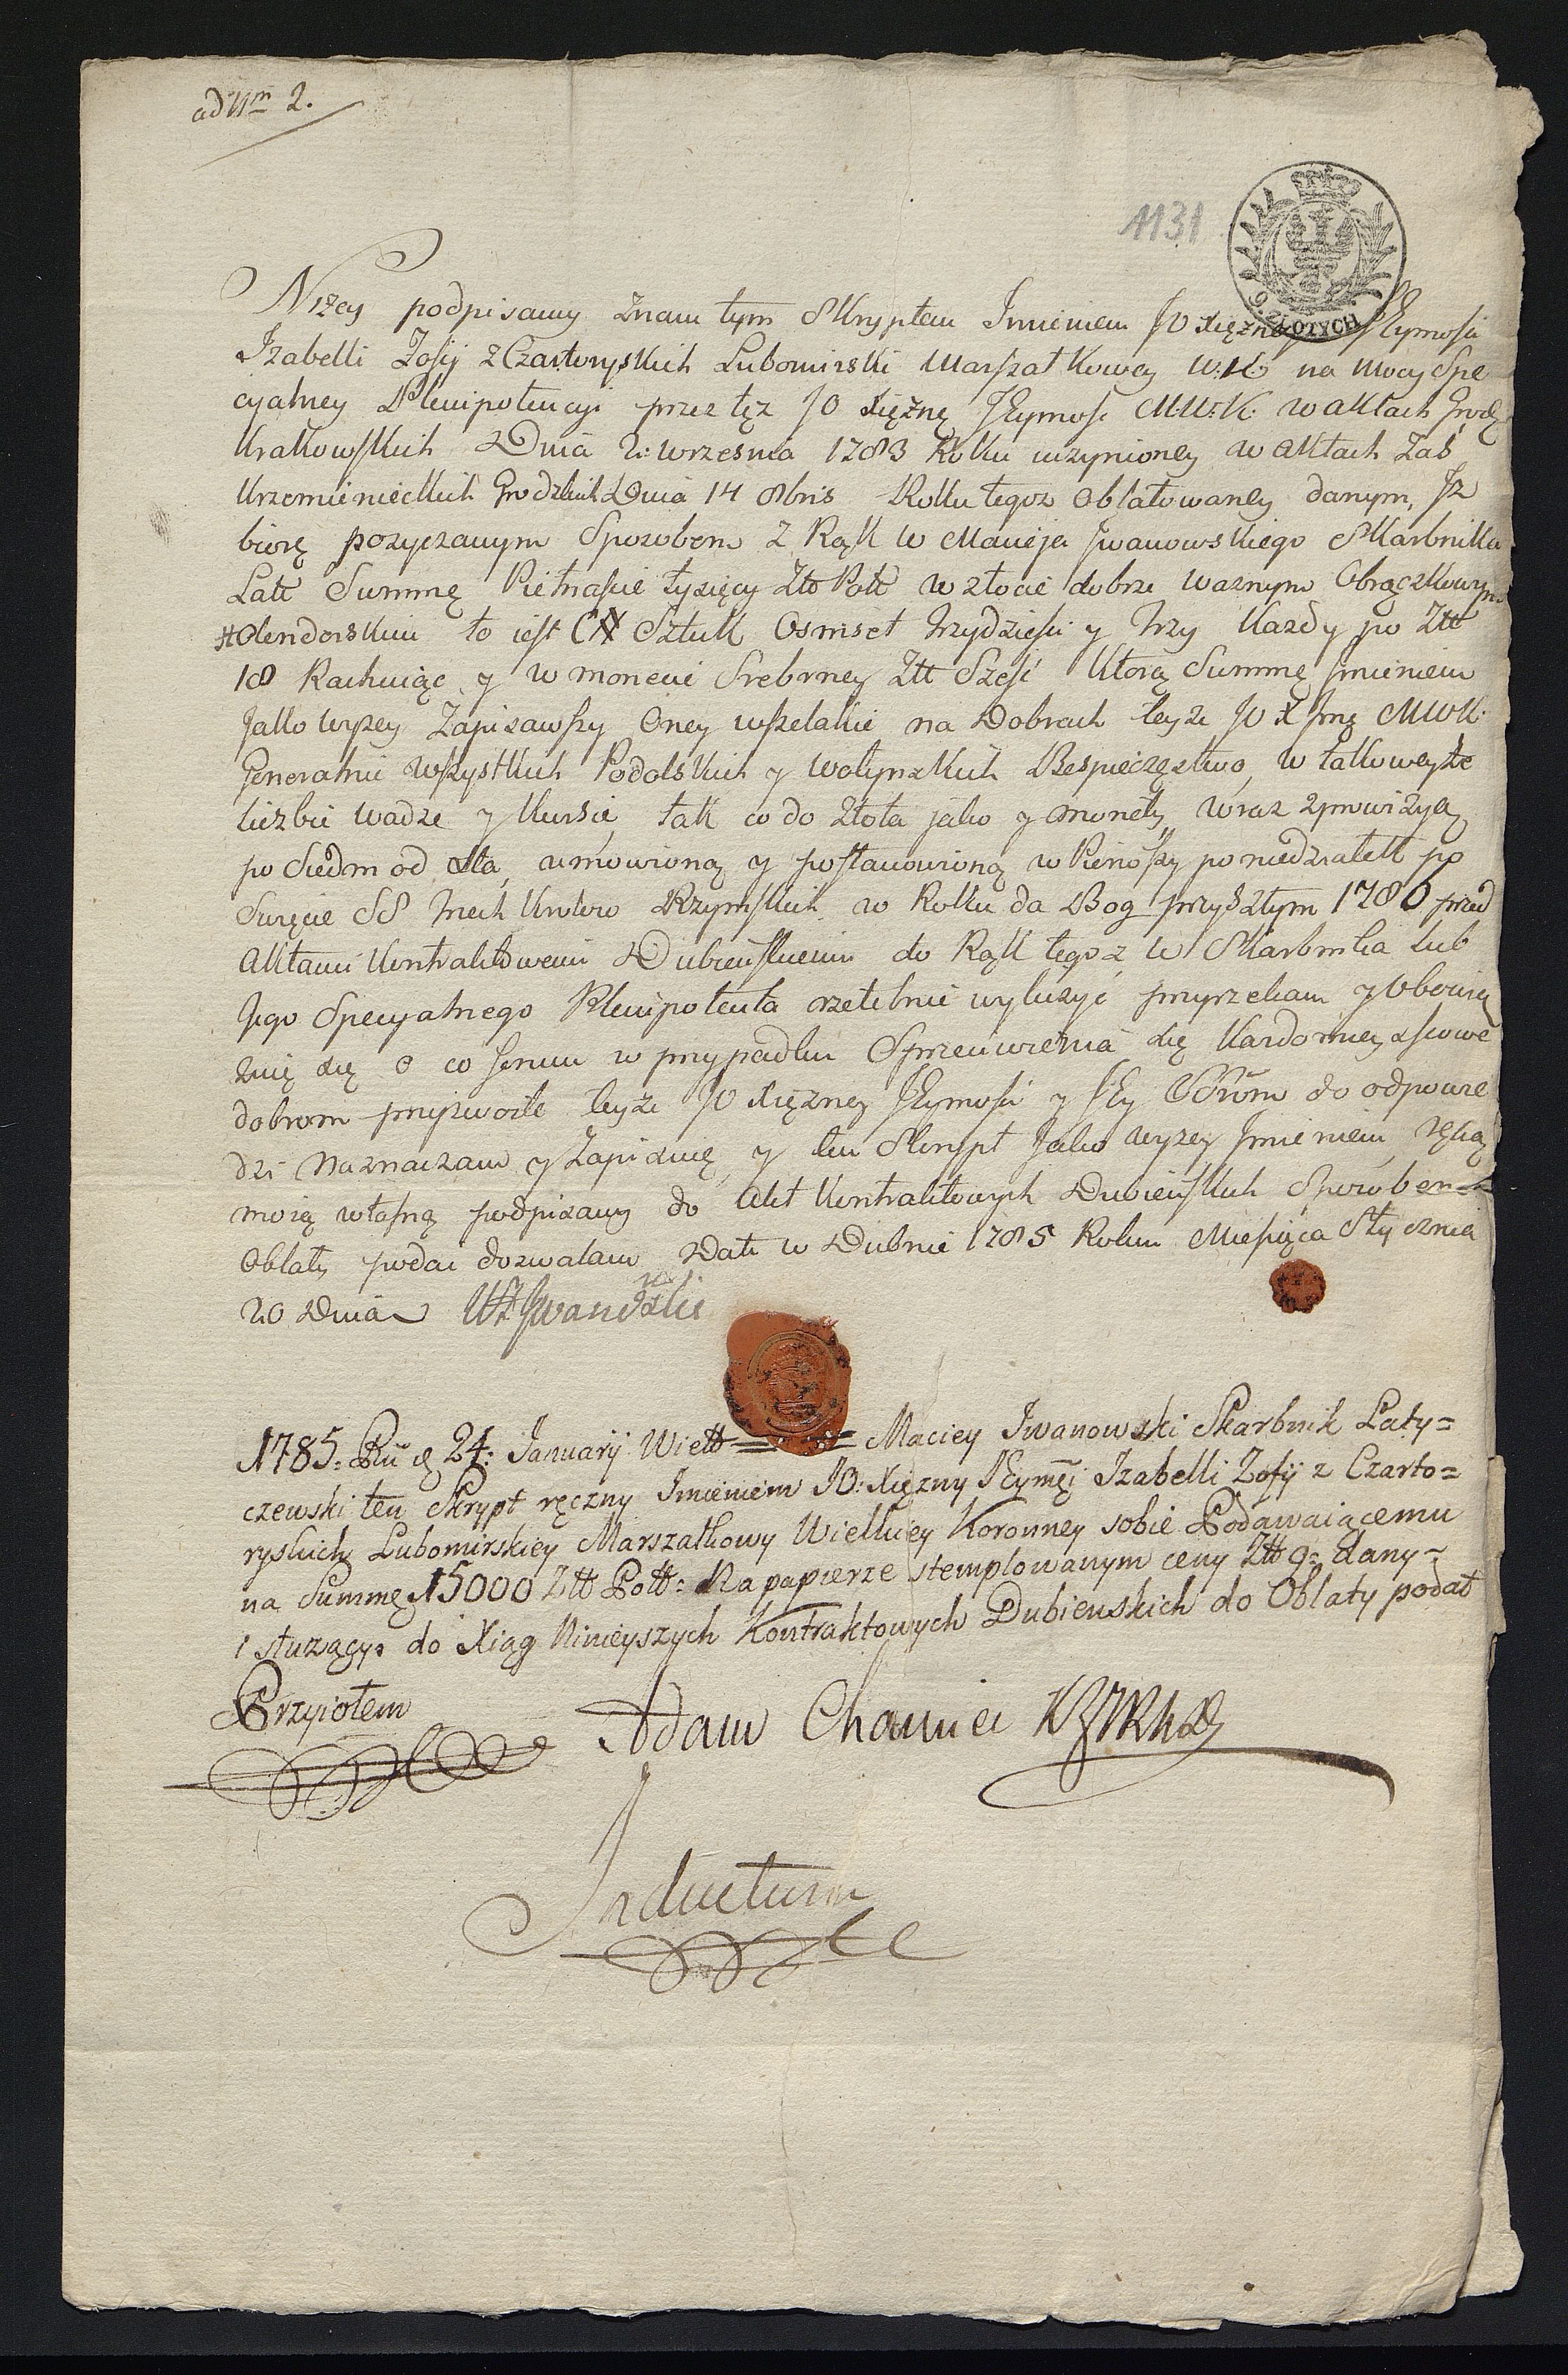 ad Nm 2.
1131
9 ZŁOTYCH
Niżey podpisany Znam tym Skryptem Imieniem JO Xiężney JEymości
Izabelli Zofij z Czartoryskich Lubomirski Marszałkowey W:K na mocy Spe
cyalney Plenipotencyi przez tęż JO Xiężnę JEymość M:W:K: w aktach Grodz
Krakowskich Dnia 2: Września 1783 Roku uczynioney w aktach Zaś
Krzemienieckich Grodzkich Dnia 14 8bris Roku tegoż oblatowaney danym, Jż
biorę pożyczanym Sposobem z Rąk W Macieja Jwanowskiego Skarbnika
Latt Summę Piętnaście tysięcy Złt Poll w złocie dobrze ważnym Obrączkowym
Holenderskim to iest CX Sztuk Osmset trzydzieści y trzy Każdy po Złt
18 Rachuiąc y w monecie Srebrney Złt Sześć Którą Summę Jmieniem
Jako wyżey Zapisawszy Oney wszelakie na Dobrach teyże JO X Jmę MWK:
Generalnie wszystkich Podolskich y wołynskich Bespieczęstwo, w takoweyże
liczbie wadze y Kursie, tak co do złota jako y monety, wraz z prowizyą
po Siedm od Sta, umowioną y postanowioną w Pierwszy poniedziałek po
Swięcie SS trzech Krolow Rzymskich w Roku da Bog przyszłym 1786 przed
Aktami Kontraktowemi Dubieńskiemi do Rąk tegoż W Skarbnika lub
Jego Specyalnego Plenipotenta rzetelnie wyliczyć przyrzekam y obowią
zuię się o co forum w przypadku Sprzeciwienia się Kardomney
dobrom przyzwoite teyże JO Xiężney JEymości y JEy do odpowie
dzi Naznaczam y Zapisuię y ten Skrypt Jako wyżey Jmieniem, ręką
moią własną podpisany do Akt Kontraktowych Dubieńskich Sposobem
Oblaty podać dozwalam Datt w Dubnie 1785 Roku Miesiąca Stycznia
20 Dnia Jwanowski
1785: Ru d 24: January Wielł Maciey Iwanowski Skarbnik Laty=
czewski ten Skrypt ręczny Imieniem JO: Xięzny JEymci Izabelli Zofij z Czarto=
ryskich Lubomirskiey Marszałkowy Wielkiey Koronney sobie Podawaiącemu
na Summę 15000 Złt Poll: Na papierze stemplowanym ceny Złt 9: dany
i służący: do Xiąg Ninieyszych Kontraktowych Dubienskich do Oblaty podał
Przyiołem Adam Chamiec
Inductum